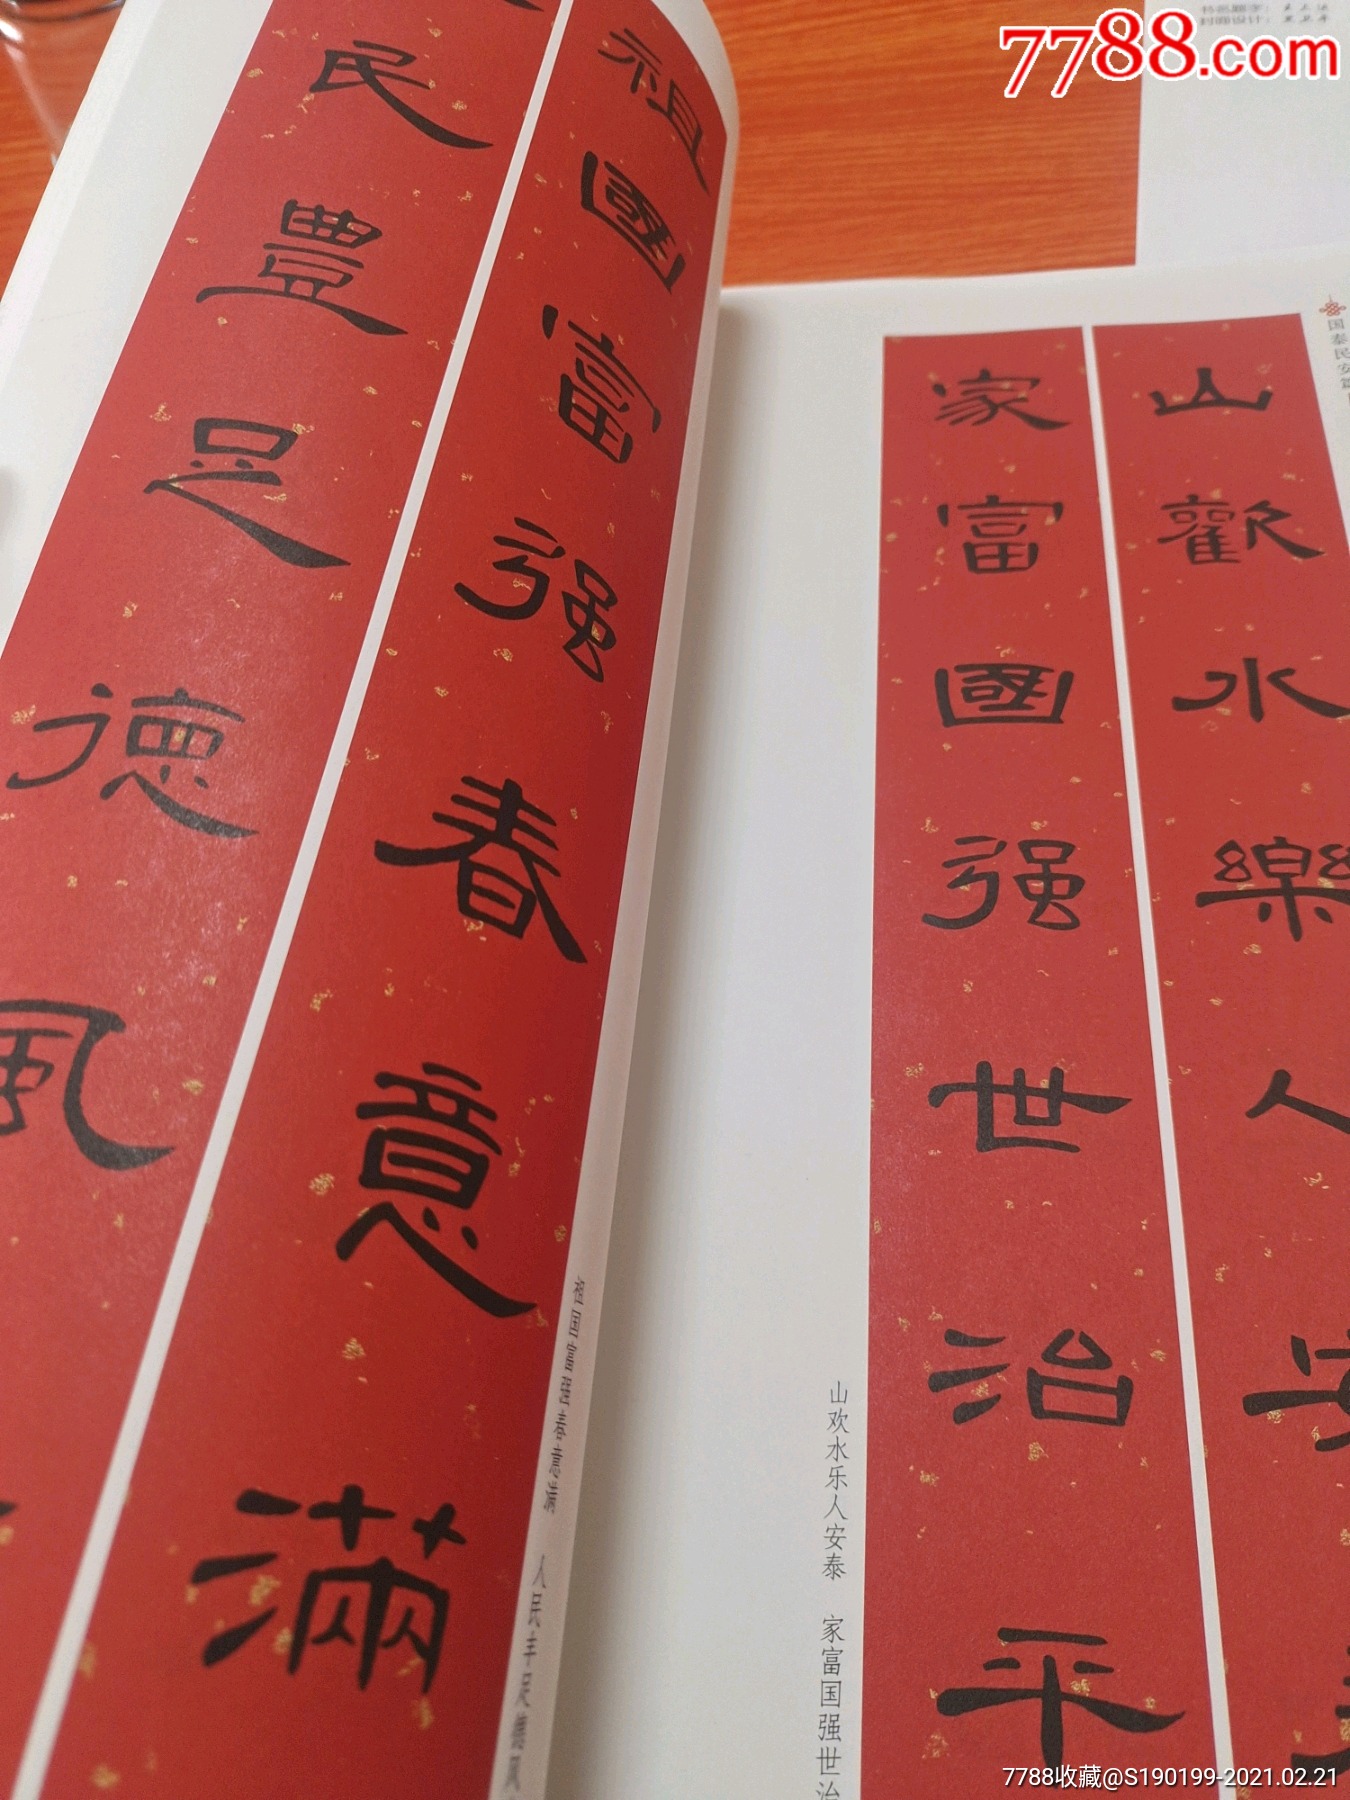 7788.com
书名题字：
封面设计：
祖國富强春意滿
民豐足德風
祖国富强春意满
人民丰足德风
国泰民安篇
山歡水樂人安
家富國强世治平
山欢水乐人安泰
家富国强世治
7788收藏@S190199-2021.02.21